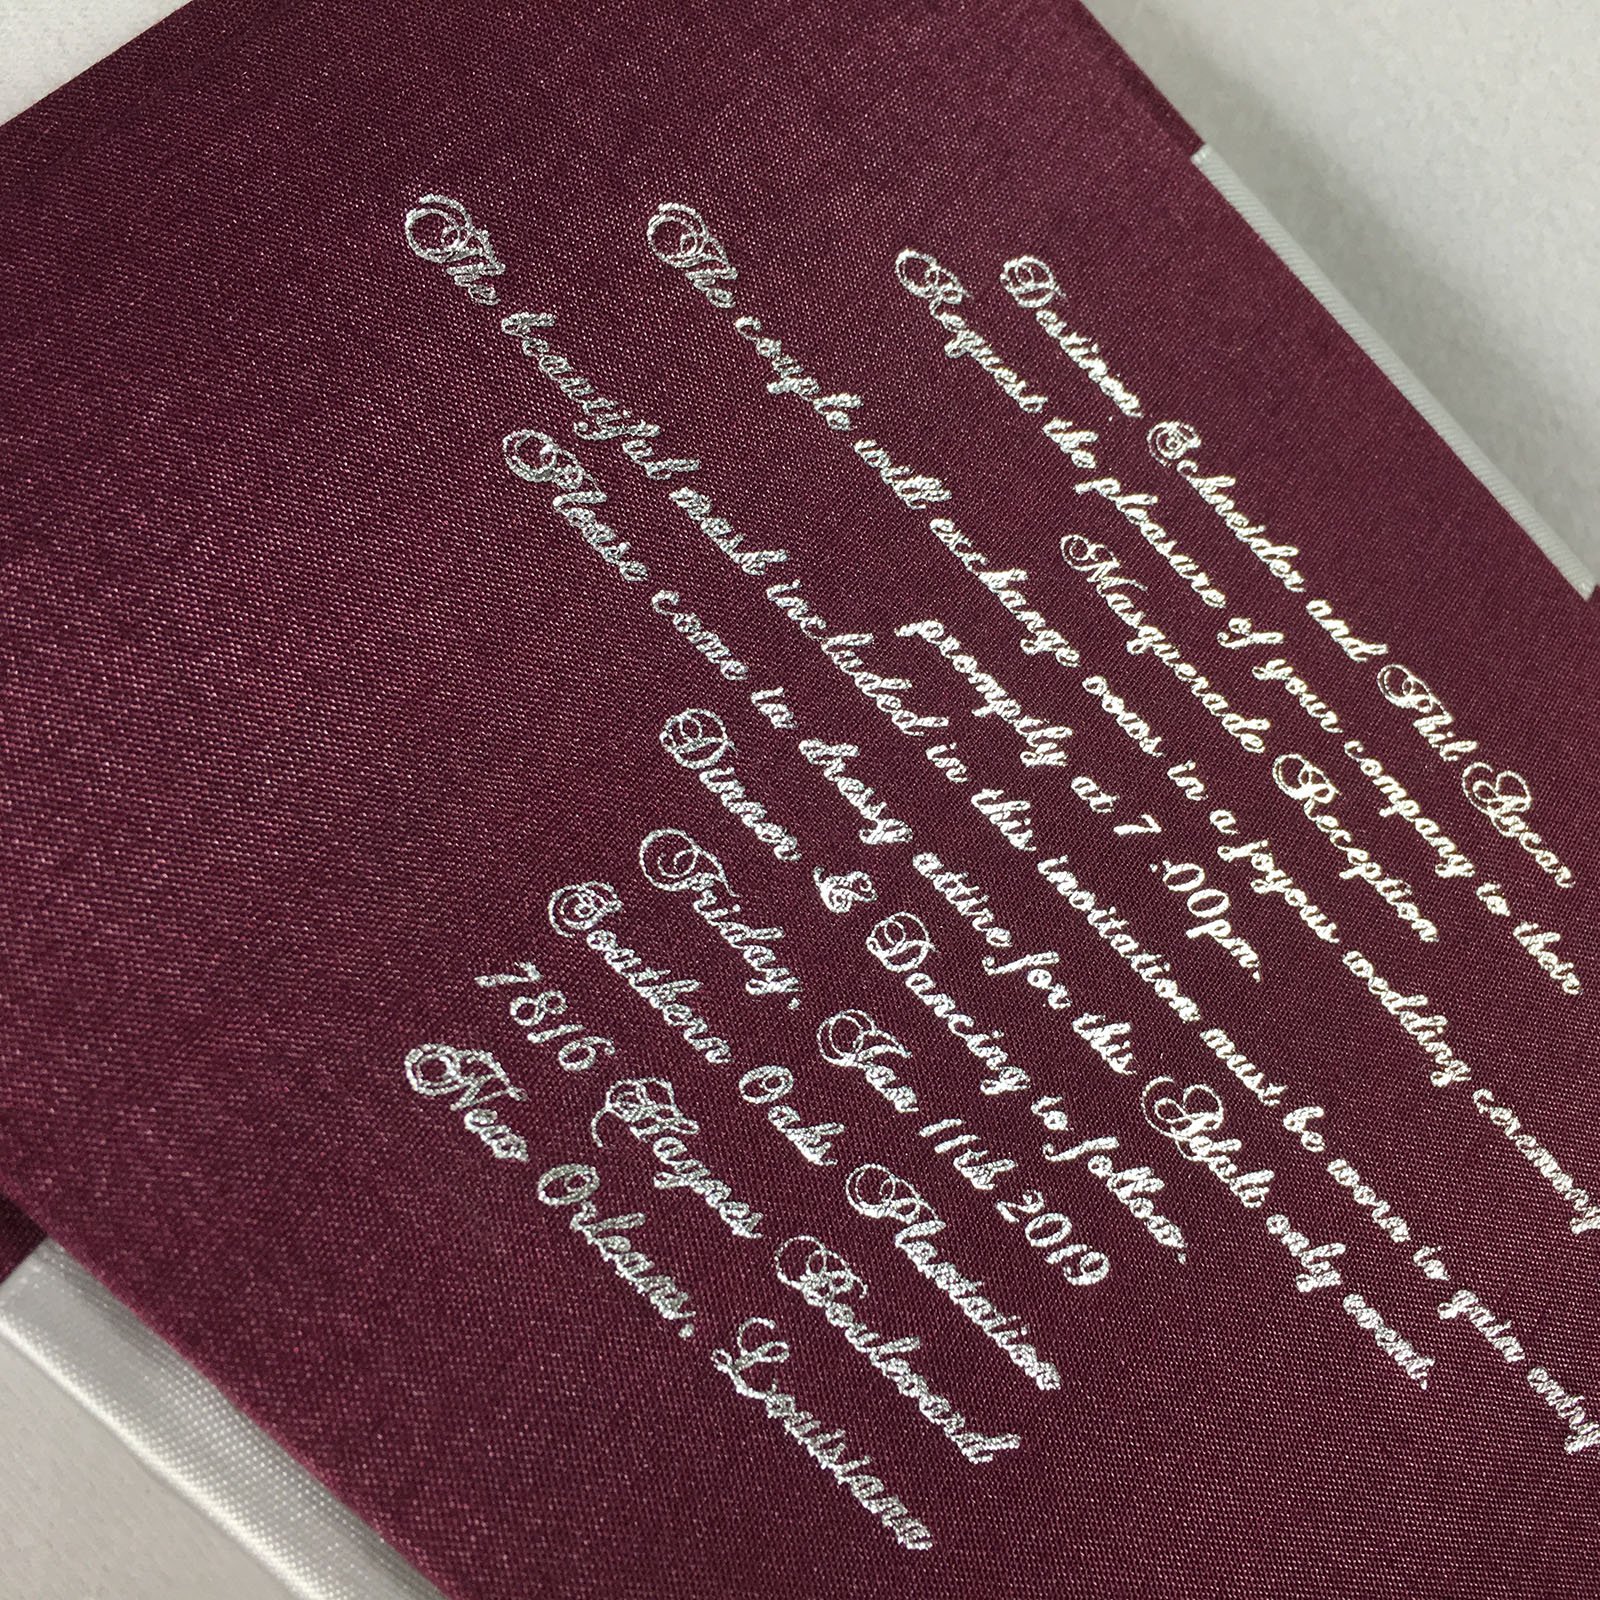 Destiney Schneider and Phil Aycox
Request the pleasure of your company to their
Masquerade Reception
The couple will exchange vows in a joyous wedding ceremony
promptly at 7 :00pm.
The beautiful mask included in this invitation must be worn to gain entry
Please come in dressy attire for this Adult only event.
Dinner & Dancing to follow.
Friday, Jan 11th 2019
Southern Oaks Plantation
7816 Haynes Boulevard
New Orleans, Louisiana